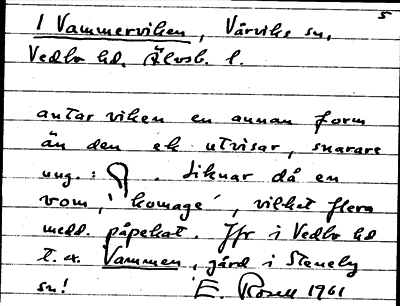 5
I Vammerviken, Vårviks sn,
Vedbo hd. Älvsb. l.
antar viken en annan form
än den ek utvisar, snarare
ung.: . Liknar då en
vom, 'komage', vilket flera
medd. påpekat. Jfr i Vedbo hd
t.ex. Vammen, gård i Steneby
sn! E. Rosell 1961